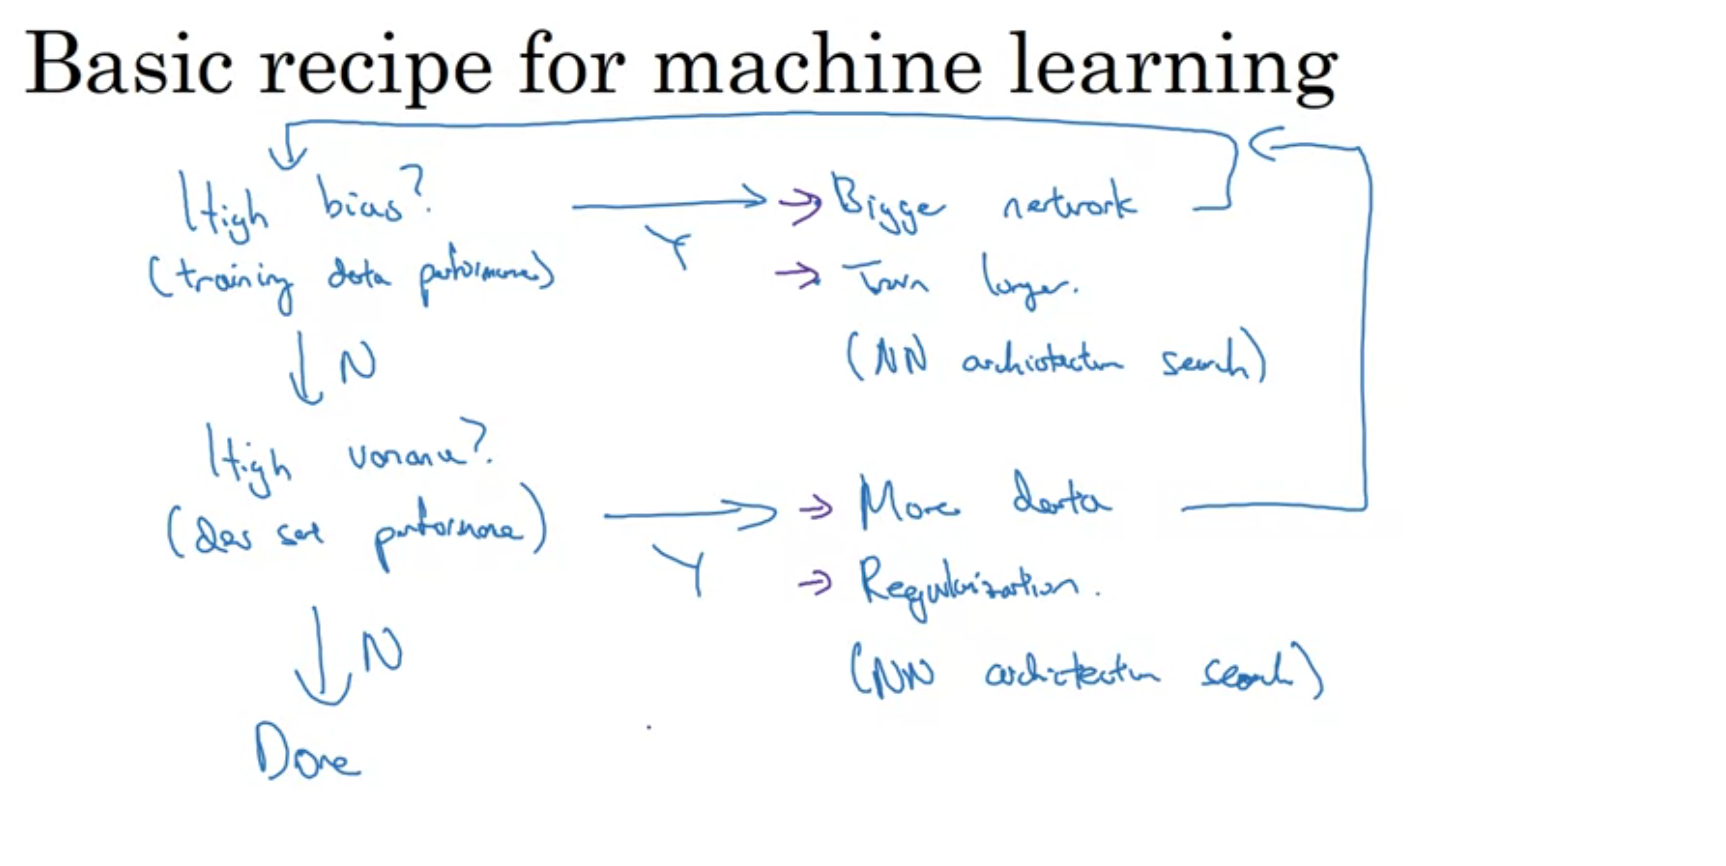 Basic recipe for machine learning
High bias? Y Bigger network
(training data performance) Train longer.
N (NN architecture search)
High variance?
(dev set performance) Y More data
Regularization.
N (NN architecture search)
Done